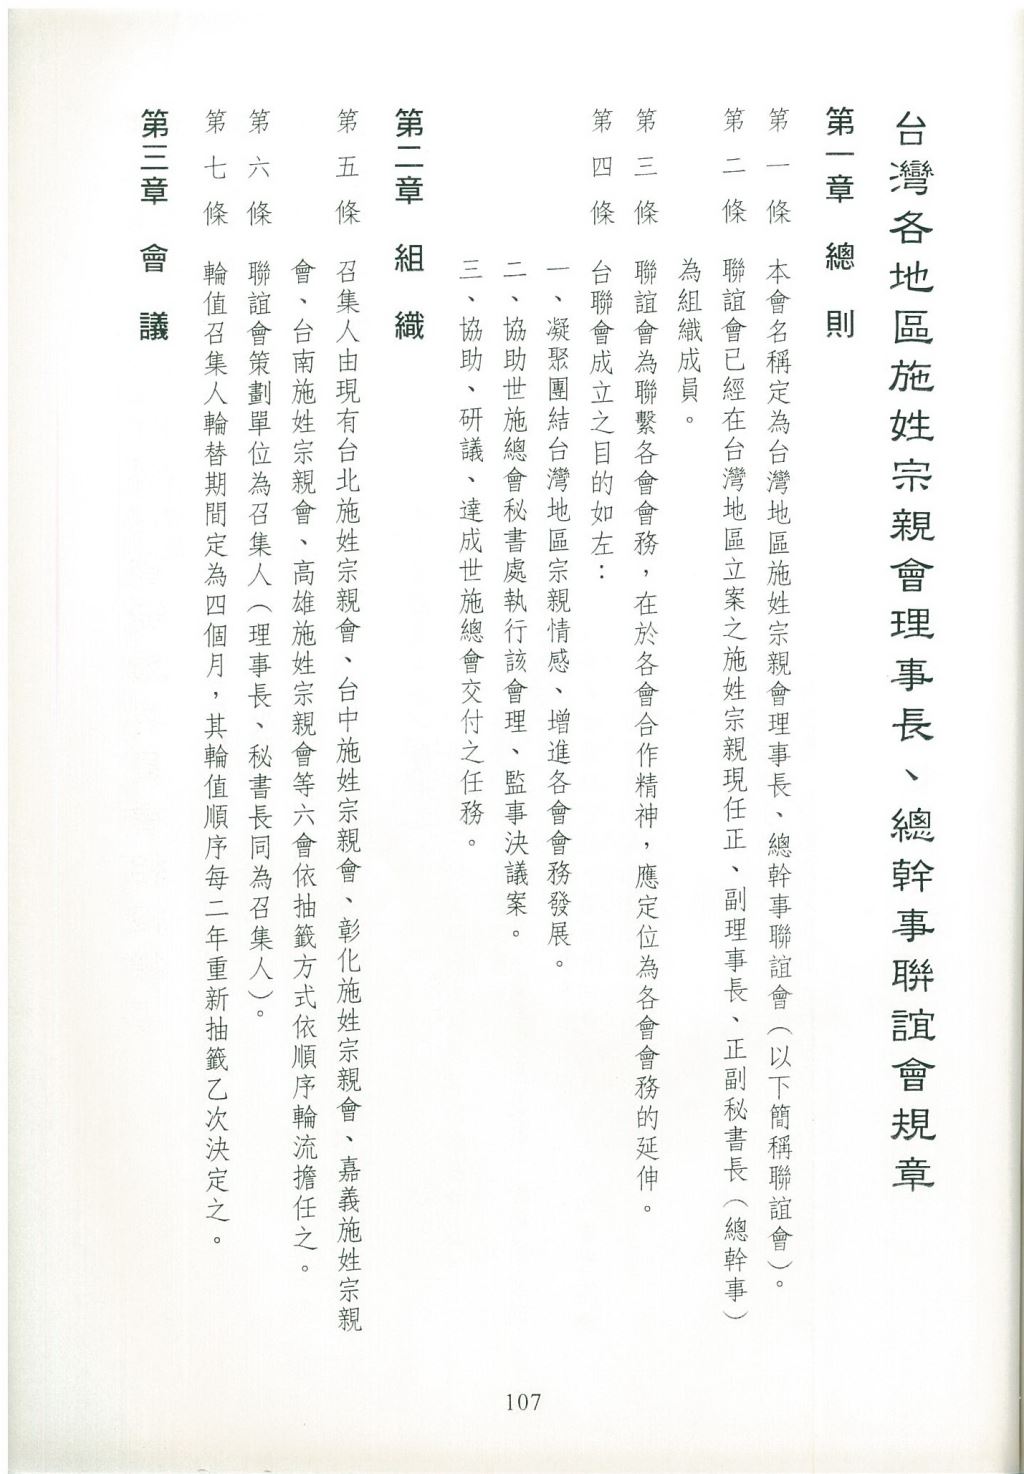 台灣各地區施姓宗親會理事長、總幹事聯誼會規章
第一章 總 則
第 一 條 本會名稱定為台灣地區施姓宗親會理事長、總幹事聯誼會（以下簡稱聯誼會）。
第 二 條 聯誼會已經在台灣地區立案之施姓宗親現任正、副理事長、正副秘書長（總幹事）
為組織成員。
第 三 條 聯誼會為聯繫各會會務，在於各會合作精神，應定位為各會會務的延伸。
第 四 條 台聯會成立之目的如左：
一、凝聚團結台灣地區宗親情感、增進各會會務發展。
二、協助世施總會秘書處執行該會理、監事決議案。
三、協助、研議、達成世施總會交付之任務。
第二章 組 織
第 五 條 召集人由現有台北施姓宗親會、台中施姓宗親會、彰化施姓宗親會、嘉義施姓宗親
會、台南施姓宗親會、高雄施姓宗親會等六會依抽籤方式依順序輪流擔任之。
第 六 條 聯誼會策劃單位為召集人（理事長、秘書長同為召集人）。
第 七 條 輪值召集人輪替期間定為四個月，其輪值順序每二年重新抽籤乙次決定之。
第三章 會 議
107